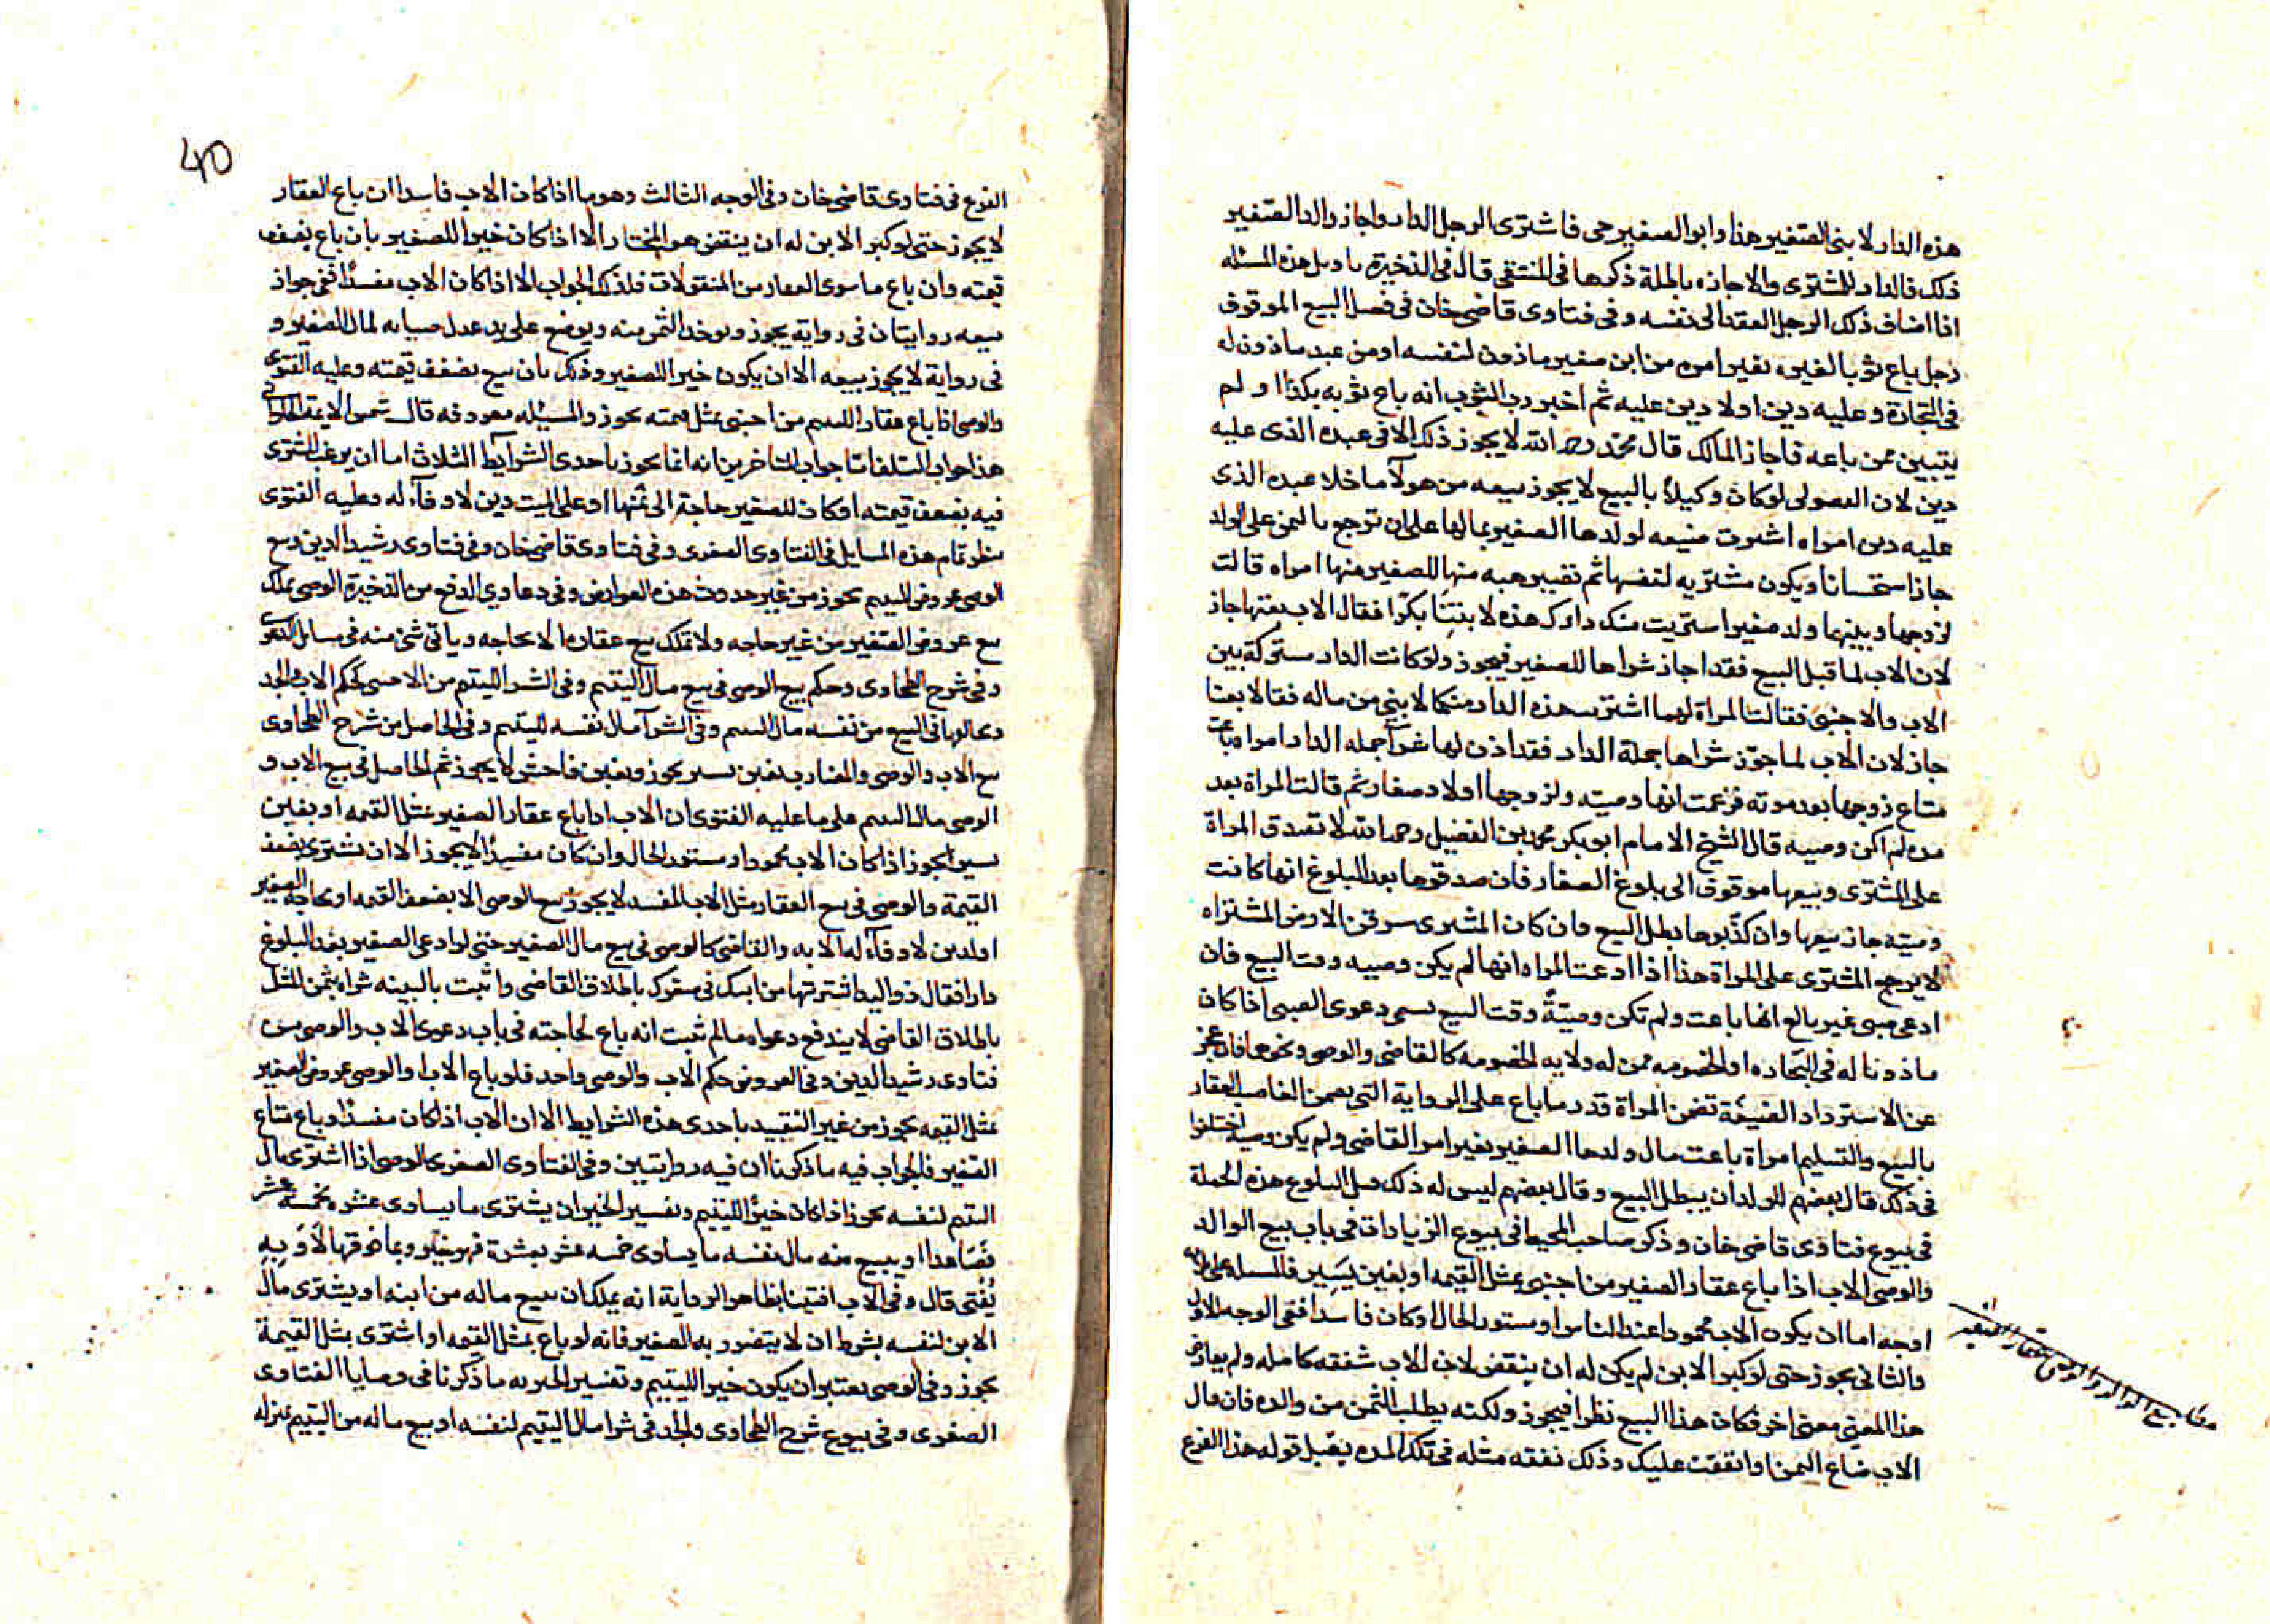 هذه الدار لابني الصغير هذا وابو الصغير حى فاشترى الرجل الدار واجاز والد الصغير
ذلك فالدار للمشترى والاجازه باطلة ذكرها فى المنتقى قال فى الذخيرة تاويل هذه المسئله
اذا اضاف ذلك الرجل العقد الى نفسه وفى فتاوى قاضى خان فى فصل البيع الموقوف
رجل باع ثوبا لغيره بغير امره من ابن صغير ماذون لنفسه او من عبد ماذون له
فى التجارة وعليه دين اولا دين عليه ثم اخبر رب الثوب انه باع ثوبه بكذا ولم
يتبين ممن باعه فاجاز المالك قال محمد رحمه الله لا يجوز ذلك الا فى عبده الذى عليه
دين لان الفضولى لو كان وكيلا بالبيع لا يجوز بيعه من هولآء ما خلا عبده الذى
عليه دين امراه اشترت ضيعه لولدها الصغير بمالها على ان ترجع بالثمن على الولد
جاز استحسانا ويكون مشتريه لنفسها ثم تصير هبه منها للصغير منها امراه قالت
لزوجها وبينهما ولد صغير اشتريت منك دارك هذه لابننا بكذا فقال الاب بعتها جاز
لان الاب لما قبل البيع فقد اجاز شراها للصغير فيجوز ولو كانت الدار مشتركة بين
الاب والاجنبى فقالت المراة لهما اشتريت هذه الدار منكما لابنى من ماله فقالا بعنا
جاز لان الاب لما جوز شراها جملة الدار فقد اذن لها شرآ جمله الدار امراه باعت
متاع زوجها بعد موته فزعمت انها وصيته ولزوجها اولاد صغار ثم قالت المراة بعد
مده لم اكن وصيه قال الشيخ الامام ابو بكر محمد بن الفضيل رحمه الله لا تصدق المراة
على المشترى وبيعها موقوف الى بلوغ الصغار فان صدقوها بعد البلوغ انها كانت
وصيته جاز بيعها وان كذبوها بطل البيع فان كان المشترى سرقن الارض المشتراه
لا يرجع المشترى على المراة هذا اذا ادعت المراه انها لم يكن وصيه وقت البيع فان
ادعى صبى غير بالغ انها باعت ولم تكن وصيتة وقت البيع تسمع دعوى الصبى اذا كان
ماذونا له فى التجاره او الخصومه ممن له ولايه الخصومه كالقاضى والوصى ونحوهما فان عجز
عن الاسترداد الضيعة تضمن المراة قدر ما باع على الرواية التى يضمن الغاصب العقار
بالبيع والتسليم امراة باعت مال ولدها الصغير بغير امر القاضى ولم يكن وصية اختلفوا
فى ذلك قال بعضهم للولد ان يبطل البيع وقال بعضهم ليس له ذلك قبل البلوغ هذه الجملة
فى بيوع فتاوى قاضى خان وذكر صاحب المحيط فى بيوع الزيادات فى باب بيع الوالد
والوصى الاب اذا باع عقار الصغير من اجنبى بمثل القيمه او بغبن يسير فالمسله على ثلاثه
اوجه اما ان يكون الاب محمودا عند الناس او مستور الحال او كان فاسدا ففى الوجه الاول
والثانى يجوز حتى لو كبر الابن لم يكن له ان ينقض لان للاب شفقه كامله ولم يعارض
هذا المعنى معنى اخر فكان هذا البيع نظرا فيجوز ولكنه يطلب الثمن من والده فان قال
الاب ضاع الثمن او انفقت عليك وذلك نفقه مثله فى تلك المده يقبل قوله هذا الفرع
بيع الوالد والوصى عقار الصغير
40
الفرع فى فتاوى قاضى خان وفى الوجه الثالث وهو ما اذا كان الاب فاسدا ان باع العقار
لا يجوز حتى لو كبر الابن له ان ينقض هو المختار الا اذا كان خيرا للصغير بان باع بضعف
قيمته وان باع ما سوى العقار من المنقولات فكذلك الجواب الا اذا كان الاب مفسدا ففى جواز
بيعه روايتان فى رواية يجوز ويوخذ الثمن منه ويوضع على يد عدل صيانه لمال الصغير و
فى رواية لا يجوز بيعه الا ان يكون خيرا للصغير وذلك بان يبيع بضعف قيمته وعليه الفتوى
والوصى اذا باع عقار اليتيم من اجنبى بمثل قيمته يجوز والمسئله معروفه قال شمس الايمه الحلوانى
هذا جواب السلف اما جواب المتاخرين انه انما يجوز باحدى الشرآيط الثلاث اما ان يرغب المشترى
فيه بضعف قيمته او كان للصغير حاجة الى ثمنها او على الميت دين لا وفآء له وعليه الفتوى
ينظر تمام هذه المسايل فى الفتاوى الصغرى وفى فتاوى قاضى خان وفى فتاوى رشيد الدين وبيع
الوصى عروض اليتيم يجوز من غير حدوث هذه العوارض وفى دعاوى الدفع من الذخيرة الوصى يملك
بيع عروض الصغير من غير حاجه ولا يملك بيع عقاره الا بحاجه وياتى شئ منه فى مسايل الدعوى
وفى شرح الطحاوى وحكم بيع الوصى فى بيع مال اليتيم وفى الشرا لليتيم من الاجنبى كحكم الاب والجد
وفى البيع من نفسه مال اليتيم وفى الشرآ مال نفسه لليتيم وفى الحاصل من شرح الطحاوى
بيع الاب والوصى والمضارب بغبن يسير يجوز وبغبن فاحش لا يجوز ثم الحاصل فى بيع الاب و
الوصى مال اليتيم على ما عليه الفتوى ان الاب اذا باع عقار الصغير بمثل القيمه او بغبن
يسير يجوز اذا كان الاب محمودا او مستور الحال وان كان مفسدا لا يجوز الا ان يشترى بضعف
القيمة والوصى فى بيع العقار مثل الاب المفسد لا يجوز بيع الوصى الا بضعف القيمه او بحاجة الصغير
او لدين لا وفآء له الا به والقاضى كالوصى فى بيع مال الصغير حتى لو ادعى الصغير بعد البلوغ
دارا فقال ذو اليد اشتريتها من ابيك فى صغرك باطلاق القاضى واثبت بالبينه شراه بثمن المثل
باطلاق القاضى لا يندفع دعواه مالم يثبت انه باع لحاجته فى باب دعوى الاب والوصى من
فتاوى رشيد الدين وفى العروض حكم الاب والوصى واحد فلو باع الاب او الوصى عروض الصغير
بمثل القيمه يجوز من غير التقييد باحدى هذه الشرايط الا ان الاب اذا كان مفسدا وباع متاع
الصغير فالجواب فيه ما ذكرنا ان فيه روايتين وفى الفتاوى الصغرى الوصى اذا اشترى مال
اليتيم لنفسه يجوز اذا كان خيرا لليتيم وتفسير الخير ان يشترى ما يساوى عشره بخمسة عشر
فصاعدا او يبيع منه مال نفسه ما يساوى خمسه عشر بعشرة فهو خير وما فوقها لا وبه
يفتى قال وفى الاب افتينا بظاهر الرواية انه يملك ان يبيع ماله من ابنه او يشترى مال
الابن لنفسه بشرط ان لا يتضرر به الصغير فانه لو باع بمثل القيمه او اشترى بمثل القيمة
يجوز وفى الوصى يعتبر ان يكون خيرا لليتيم وتفسير الخيريه ما ذكرنا فى وصايا الفتاوى
الصغرى وفى بيوع شرح الطحاوى والجد فى شرا مال اليتيم لنفسه او بيع ماله من اليتيم بمنزله